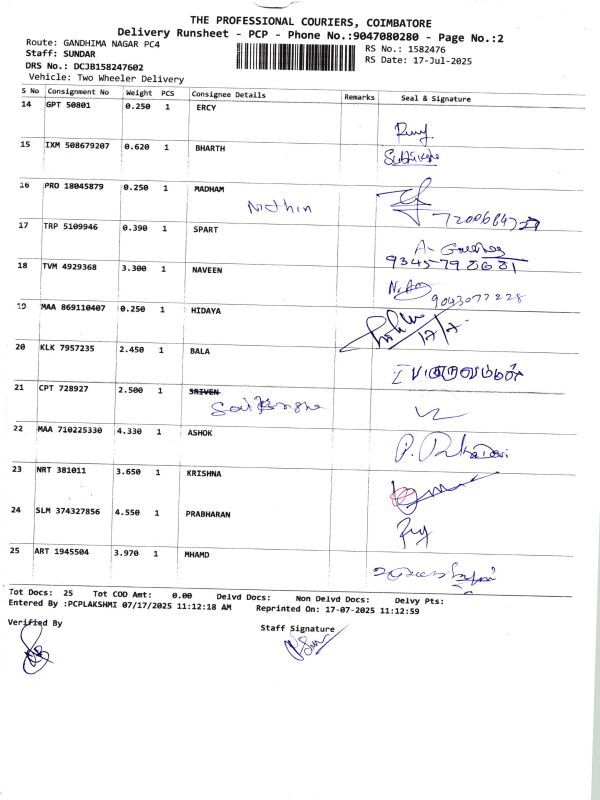 THE PROFESSIONAL COURIERS, COIMBATORE
Delivery Runsheet - PCP - Phone No.:9047080280 - Page No.:2
Route: GANDHIMA NAGAR PC4
RS No.: 1582476
Staff: SUNDAR
RS Date: 17-Jul-2025
DRS No.: DCJB158247602
Vehicle: Two Wheeler Delivery
S No Consignment No Weight PCS Consignee Details Remarks Seal & Signature
14 GPT 50801 0.250 1 ERCY
15 IXM 508679207 0.620 1 BHARTH
16 PRO 18045879 0.250 1 MADHAM
Nithin
17 TRP 5109946 0.390 1 SPART
9345798681
18 TVM 4929368 3.300 1 NAVEEN
9043077228
19 MAA 869110407 0.250 1 HIDAYA
17/7
20 KLK 7957235 2.450 1 BALA
21 CPT 728927 2.500 1 SRIVEN
22 MAA 710225330 4.330 1 ASHOK
23 NRT 381011 3.650 1 KRISHNA
24 SLM 374327856 4.550 1 PRABHARAN
25 ART 1945504 3.970 1 MHAMD
Tot Docs: 25 Tot COD Amt: 0.00 Delvd Docs: Non Delvd Docs: Delvy Pts:
Entered By :PCPLAKSHMI 07/17/2025 11:12:18 AM Reprinted On: 17-07-2025 11:12:59
Verified By Staff Signature